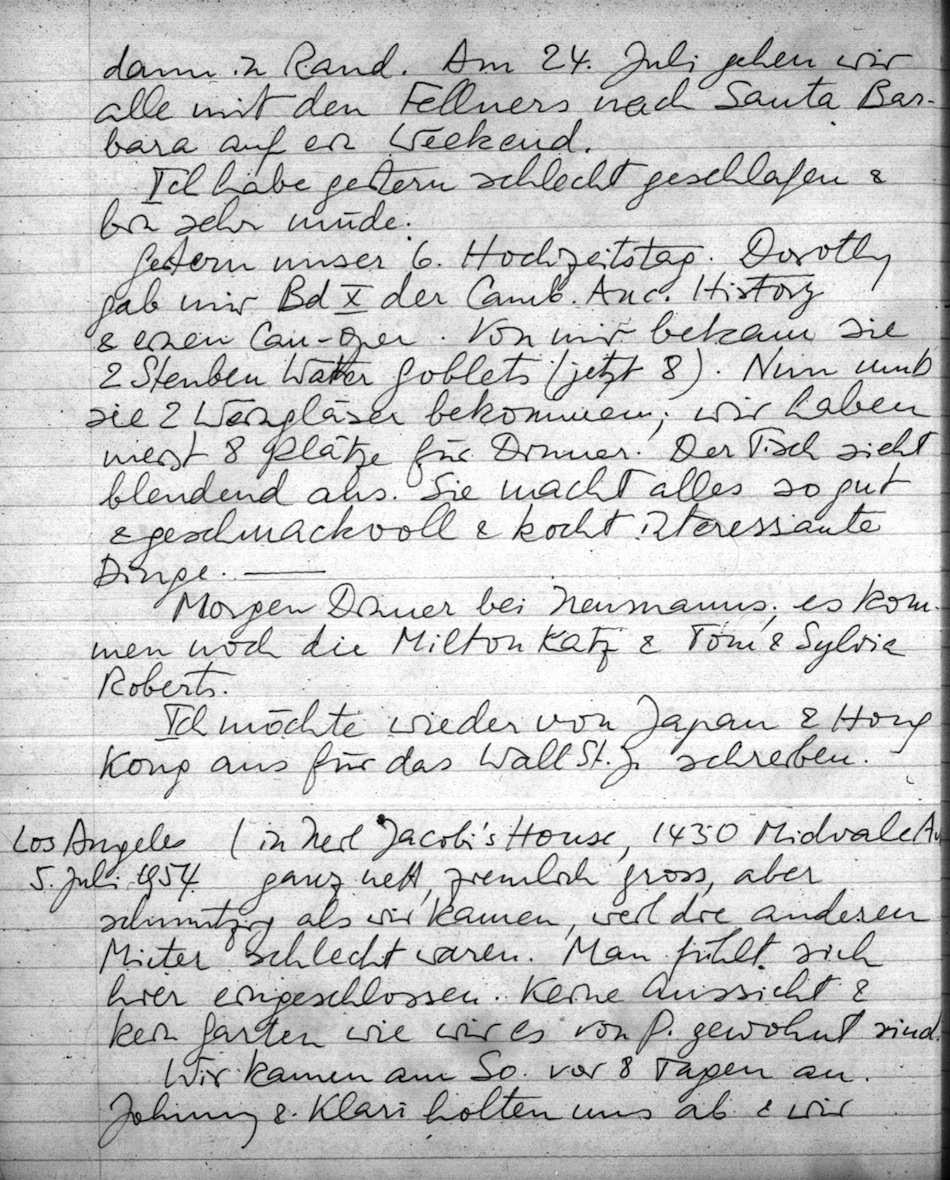 dann in Rand. Am 24. Juli gehen wir
alle mit den Fellners nach Santa Bar-
bara auf ein Weekend.
Ich habe gestern schlecht geschlafen &
bin sehr müde.
Gestern unser 6. Hochzeitstag. Dorothy
gab mir Bd X der Camb. Anc. History
& einen Can-oper. Von mir bekam sie
2 Steuben Water Goblets (jetzt 8). Nun muß
sie 2 Weingläser bekommen; wir haben
meist 8 Plätze für Dinner. Der Tisch sieht
blendend aus. Sie macht alles so gut
& geschmackvoll & kocht interessante
Dinge. —
Morgen Dinner bei Neumanns; es kom-
men noch die Milton Katz & Tom & Sylvia
Roberts.
Ich möchte wieder von Japan & Hong
Kong aus für das Wall St. J. schreiben.
Los Angeles (in Neil Jacobi's House, 1430 Midvale Av
5. Juli 1954 ganz nett, ziemlich gross, aber
schmutzig als wir kamen, weil die anderen
Mieter schlecht waren. Man fühlt sich
hier eingeschlossen. Keine Aussicht &
kein Garten wie wir es von P. gewohnt sind.
Wir kamen am So. vor 8 Tagen an.
Johnny & Klari holten uns ab & wir